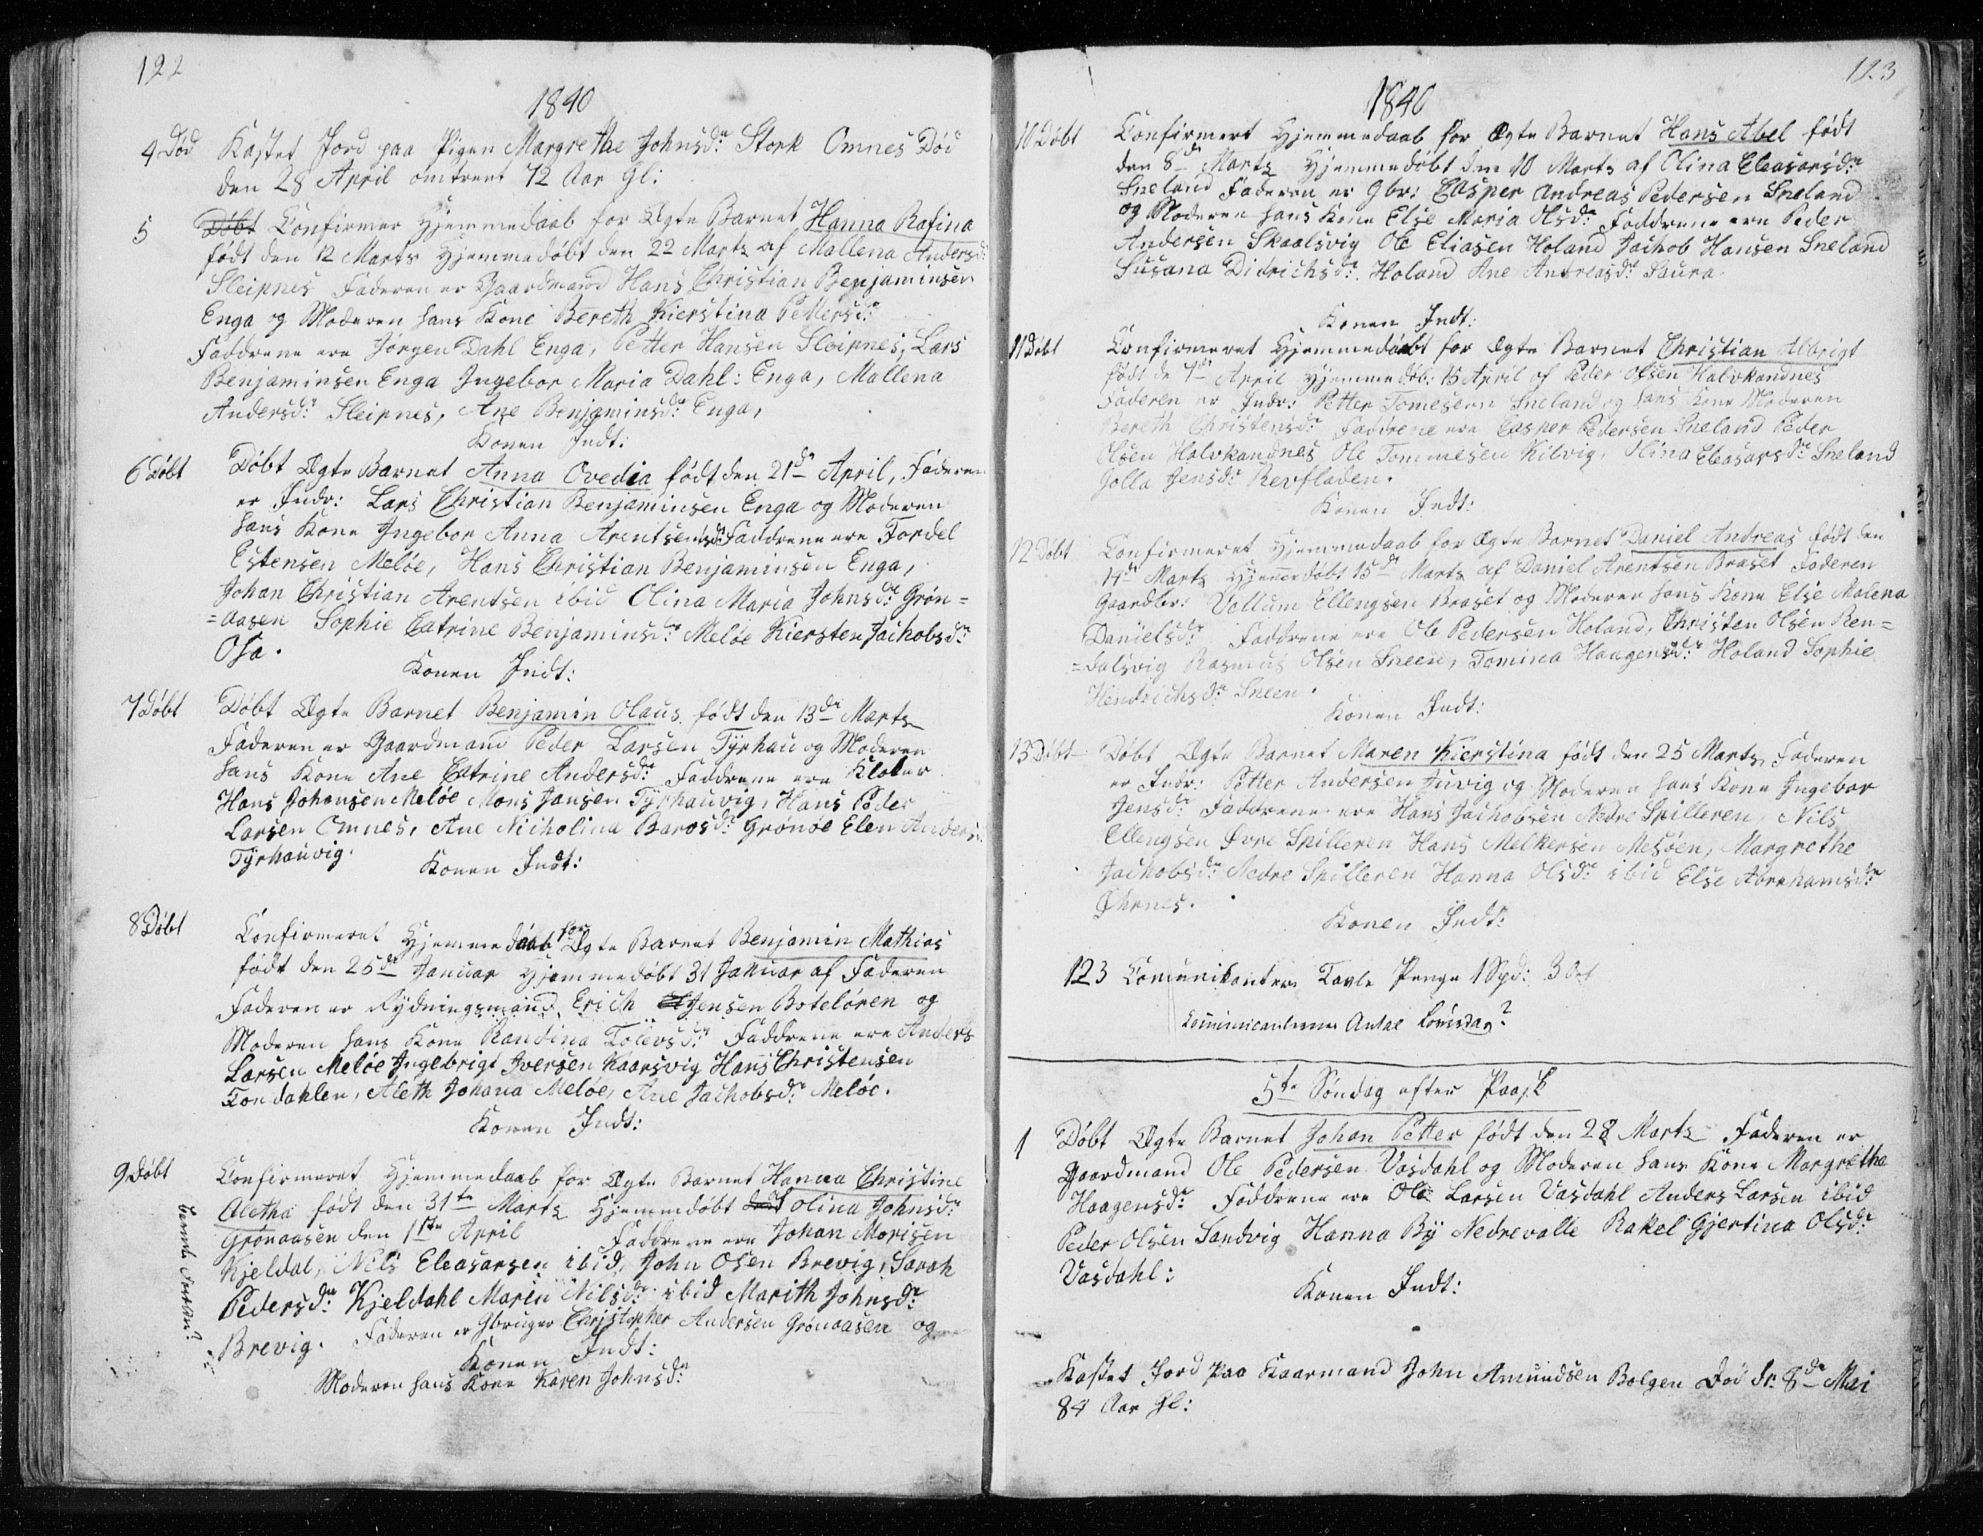 122
1840
4 Død Kastet Jord paa Pigen Margrethe Johnsdr: Stork Omnes Død
den 28 April omtrent 72 Aar Gl:
5 Døbt Confirmer Hjemmedaab for Ægte Barnet Hanna Rafina
født den 12 Marts Hjemmedøbt den 22 Marts af Mallena Andersdr:
Sleipnes Faderen er Gaardmand Hans Christian Benjaminsen
Enga og Moderen hans Kone Bereth Kierstina Pettersdr:
Faddrene ere Jørgen Dahl Enga, Petter Hansen Sleipnes, Lars
Benjaminsen Enga Ingebor Maria Dahl: Enga, Mallena
Andersdr: Sleipnes, Ane Benjaminsdr: Enga,
Konen Indt:
6 Døbt Døbt Ægte Barnet Anna Ovedia født den 21de April, Faderen
er Indr: Lars Christian Benjaminsen Enga og Moderen
hans Kone Ingebor Anna Arentsensdr: Faddrene ere Tordel
Estensen Meløe, Hans Christian Benjaminsen Enga,
Johan Christian Arentsen ibid Olina Maria Johnsdr: Grøn=
=aasen Sophie Catrine Benjaminsdr: Meløe Kiersten Jachobsdr:
Osa.
Konen Indt:
7 Døbt Døbt Ægte Barnet Benjamin Olaus født den 13de Marts
Faderen er Gaardmand Peder Larsen Tyrhau og Moderen
hans Kone Ane Catrine Andersdr: Faddrene ere Kloker
Hans Johansen Meløe Mons Jansen Tyrhauvig, Hans Peder
Larsen Omnes, Ane Nicholina Barosdr: Grønøe Elen Andersdr:
Tyrhauvig.
Konen Indt:
8 Døbt Confirmeret Hjemmedaab for Ægte Barnet Benjamin Mathias
født den 25de Januar Hjemmedøbt 31 Januar af Faderen
Faderen er Rydningsmand Erich Jensen Boteløren og
Moderen hans Kone Randina Tolevsdr: Faddrene ere Anders
Larsen Meløe Ingebrigt Iversen Kaarsvig Hans Christensen
Tondahlen, Aleth Johana Meløe, Ane Jachobsdr: Meløe.
Konen Indt:
9 Døbt Confirmeret Hjemmedaab for Ægte Barnet Hanna Christine
Aletha født den 31te Marts Hjemmedøbt Olina Johnsdr:
Grønaasen den 1ste April Faddrene ere Johan Morisen
Kjeldal, Nils Eleasarsen ibid, John Osen Brevig, Sarah
Pedersdr: Kjeldahl Maren Nilsdr: ibid Marith Johnsdr:
Brevig. Faderen er Gbruger Christopher Andersen Grønaasen og
Konen Indt:
Moderen hans Kone Karen Johnsdr:
123
1840
10 Døbt Confirmert Hjemmedaab for Ægte Barnet Hans Abel født
den 8de Marts Hjemmedøbt den 10 Marts af Olina Eleasarsdr:
Sneland Faderen er Gbr: Casper Andreas Pedersen Sneland
og Moderen hans Kone Else Maria Olsdr: Faddrene ere Peder
Andersen Skaalsvig Ole Eliasen Holand Jachob Hansen Sneland
Susana Didrichsdr: Holand Ane Antreasdr: Saura
Konen Indt:
11 Døbt Confirmeret Hjemmedaabt for Ægte Barnet Christian Albrigt
født de 7de April Hjemmedøb: 15 April af Peder Olsen Halvkandnes
Faderen er Indr: Petter Tomesen Sneland og hans Kone Moderen
Bereth Christensdr: Faddrene ere Casper Pedersen Sneland Peder
Olsen Halvkandnes Ole Tommesen Kilvig, Olina Eleasarsdr: Sneland
Golla Jensdr: Revfladen.
Konen Indt:
12 Døbt Confirmeret Hjemmedaab for Ægte Barnet Daniel Andreas født den
14de Marts Hjemmedøbt 15de Marts af Daniel Arentsen Braset Faderen
Gaardbr: Vollum Ellengsen Braset og Moderen hans Kone Else Malena
Danielsdr: Faddrene ere Ole Pedersen Holand, Christen Olsen Ren=
=dalsvig Rasmus Olsen Sneen, Tomina Haagensdr: Holand Sophie
Hendrichsdr: Sneen.
Konen Indt:
13 Døbt Døbt Ægte Barnet Maren Kierstina født den 25 Marts, Faderen
er Indr: Petter Andersen Juvig og Moderen hans Kone Ingebor
Jensdr: Faddrene ere Hans Jachobsen Nedre Spilleren, Nils
Ellengsen Øvre Spilleren Hans Melkersen Mesøen, Margrethe
Jachobsdr: Nedre Spilleren Hanna Olsdr: ibid Else Abrahamsdr:
Øhrnes.
Konen Indt:
123 Comunikanter Tavle Penge 1 Spd: 3 Ort
Comunicanternes Antal Louisdag?
5te Søndag efter Paask
1 Døbt Ægte Barnet Johan Petter født den 28 Marts Faderen er
Gaardmand Ole Pedersen Vasdahl og Moderen hans Kone Margrethe
Haagensdr: Faddrene ere Ole Larsen Vasdahl Anders Larsen ibid
Peder Olsen Sandvig Hanna By Nedrevalle Rakel Gjertina Olsdr:
Vasdahl:
Konen Indt:
Kastet Jord paa Kaarmand John Amundsen Bolgen Død dn 8de Mai
84 Aar Gl: